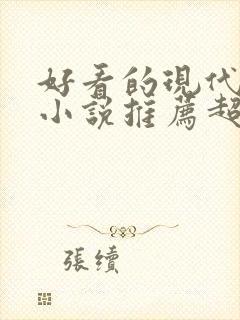 好看的現代
小說推薦超
張續